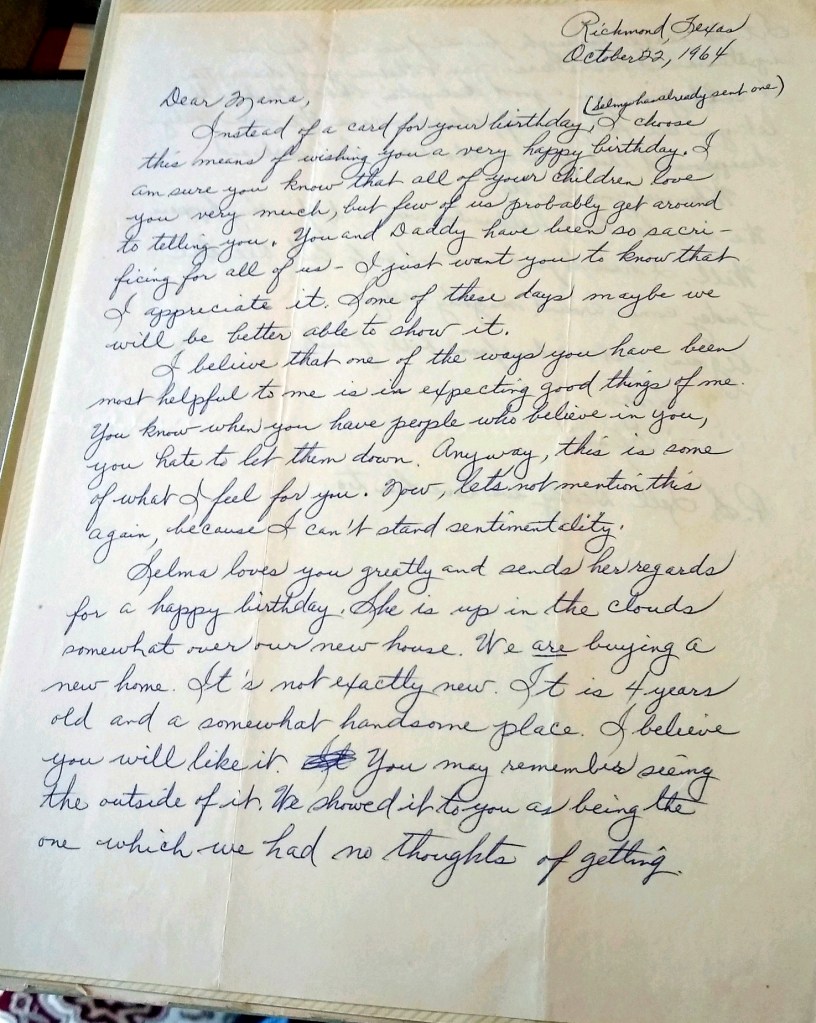 Richmond, Texas
October 22, 1964
Dear Mama,
(Selma has already sent one)
Instead of a card for your birthday, I choose
this means of wishing you a very happy birthday. I
am sure you know that all of your children love
you very much, but few of us probably get around
to telling you. You and Daddy have been so sacri-
ficing for all of us - I just want you to know that
I appreciate it. Some of these days maybe we
will be better able to show it.
I believe that one of the ways you have been
most helpful to me is in expecting good things of me.
You know when you have people who believe in you,
you hate to let them down. Anyway, this is some
of what I feel for you. Now, lets not mention this
again, because I can't stand sentimentality.
Selma loves you greatly and sends her regards
for a happy birthday. She is up in the clouds
somewhat over our new house. We are buying a
new home. It's not exactly new. It is 4 years
old and a somewhat handsome place. I believe
you will like it. You may remember seeing
the outside of it. We showed it to you as being the
one which we had no thoughts of getting.